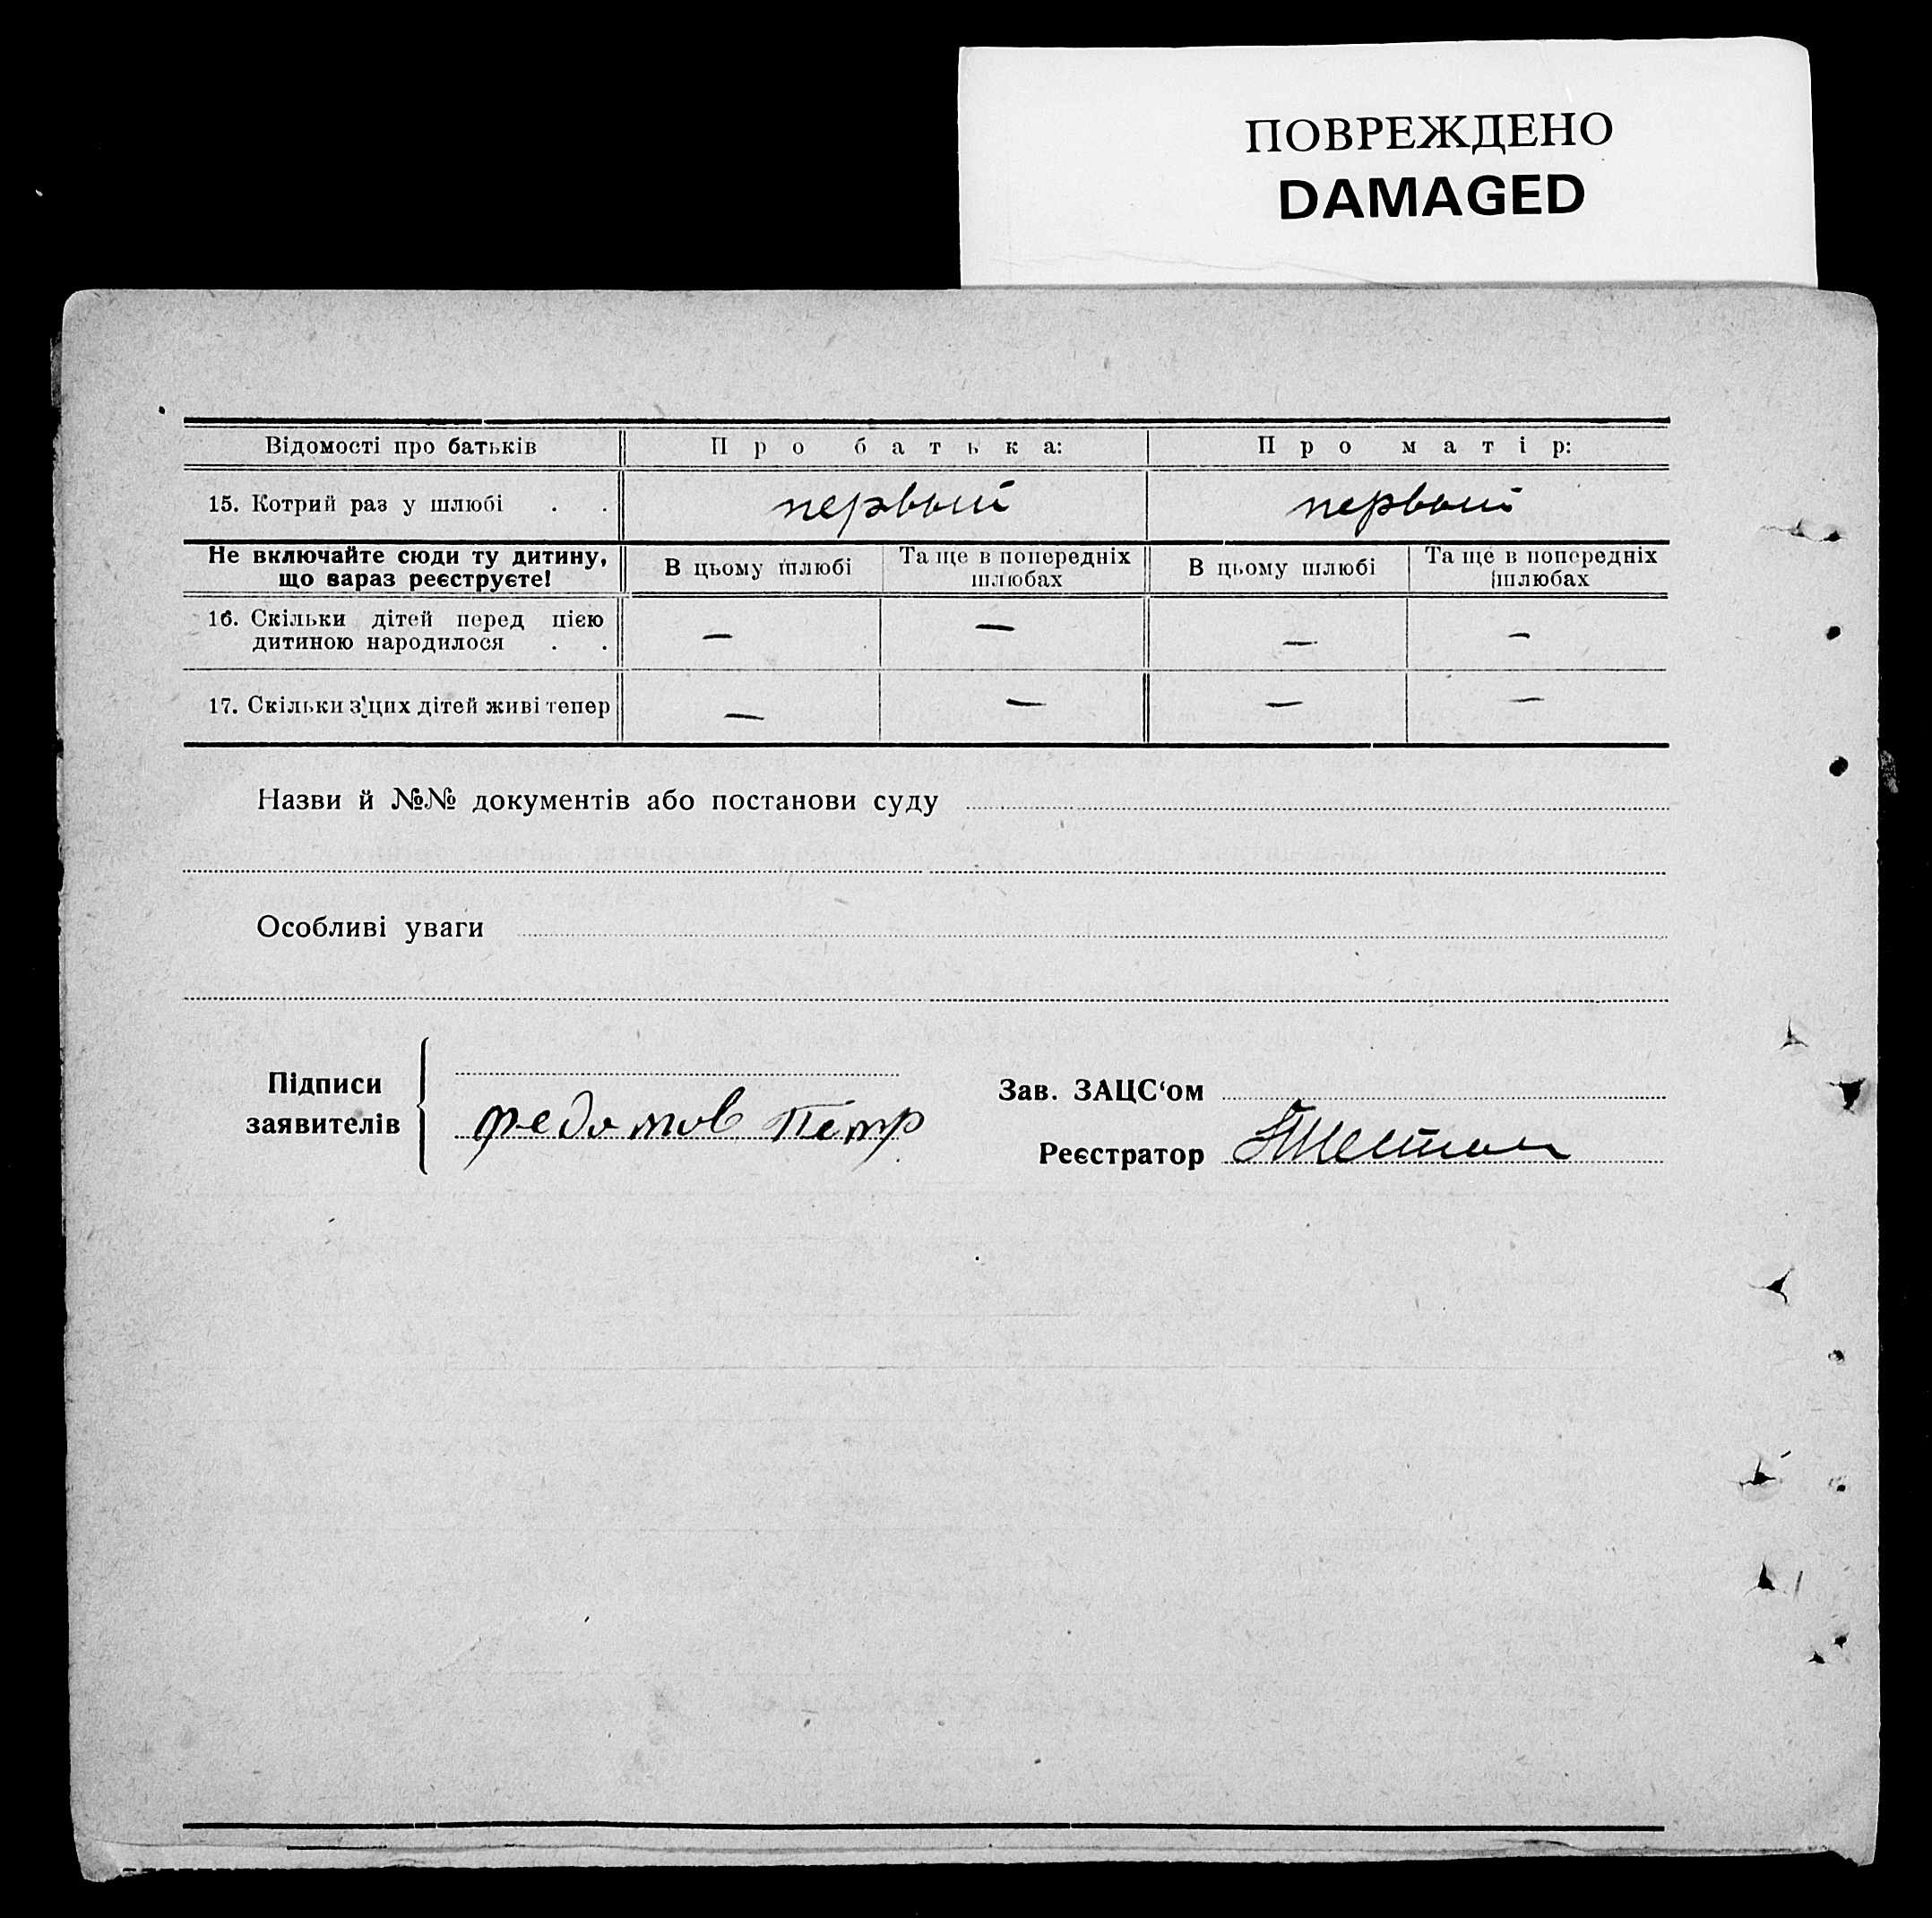 ПОВРЕЖДЕНО
DAMAGED
Відомості про батьків Про батька: Про матір:
15. Котрий раз у шлюбі . . первый первый
Не включайте сюди ту дитину, що вараз реєструєте! В цьому шлюбі Та ще в попередніх шлюбах В цьому шлюбі Та ще в попередніх шлюбах
16. Скільки дітей перед цією
дитиною народилося . . — — — —
17. Скільки з цих дітей живі тепер — — — —
Назви й №№ документів або постанови суду
Особливі уваги
Підписи
заявителів
Петр
Зав. ЗАЦС‘ом
Реєстратор